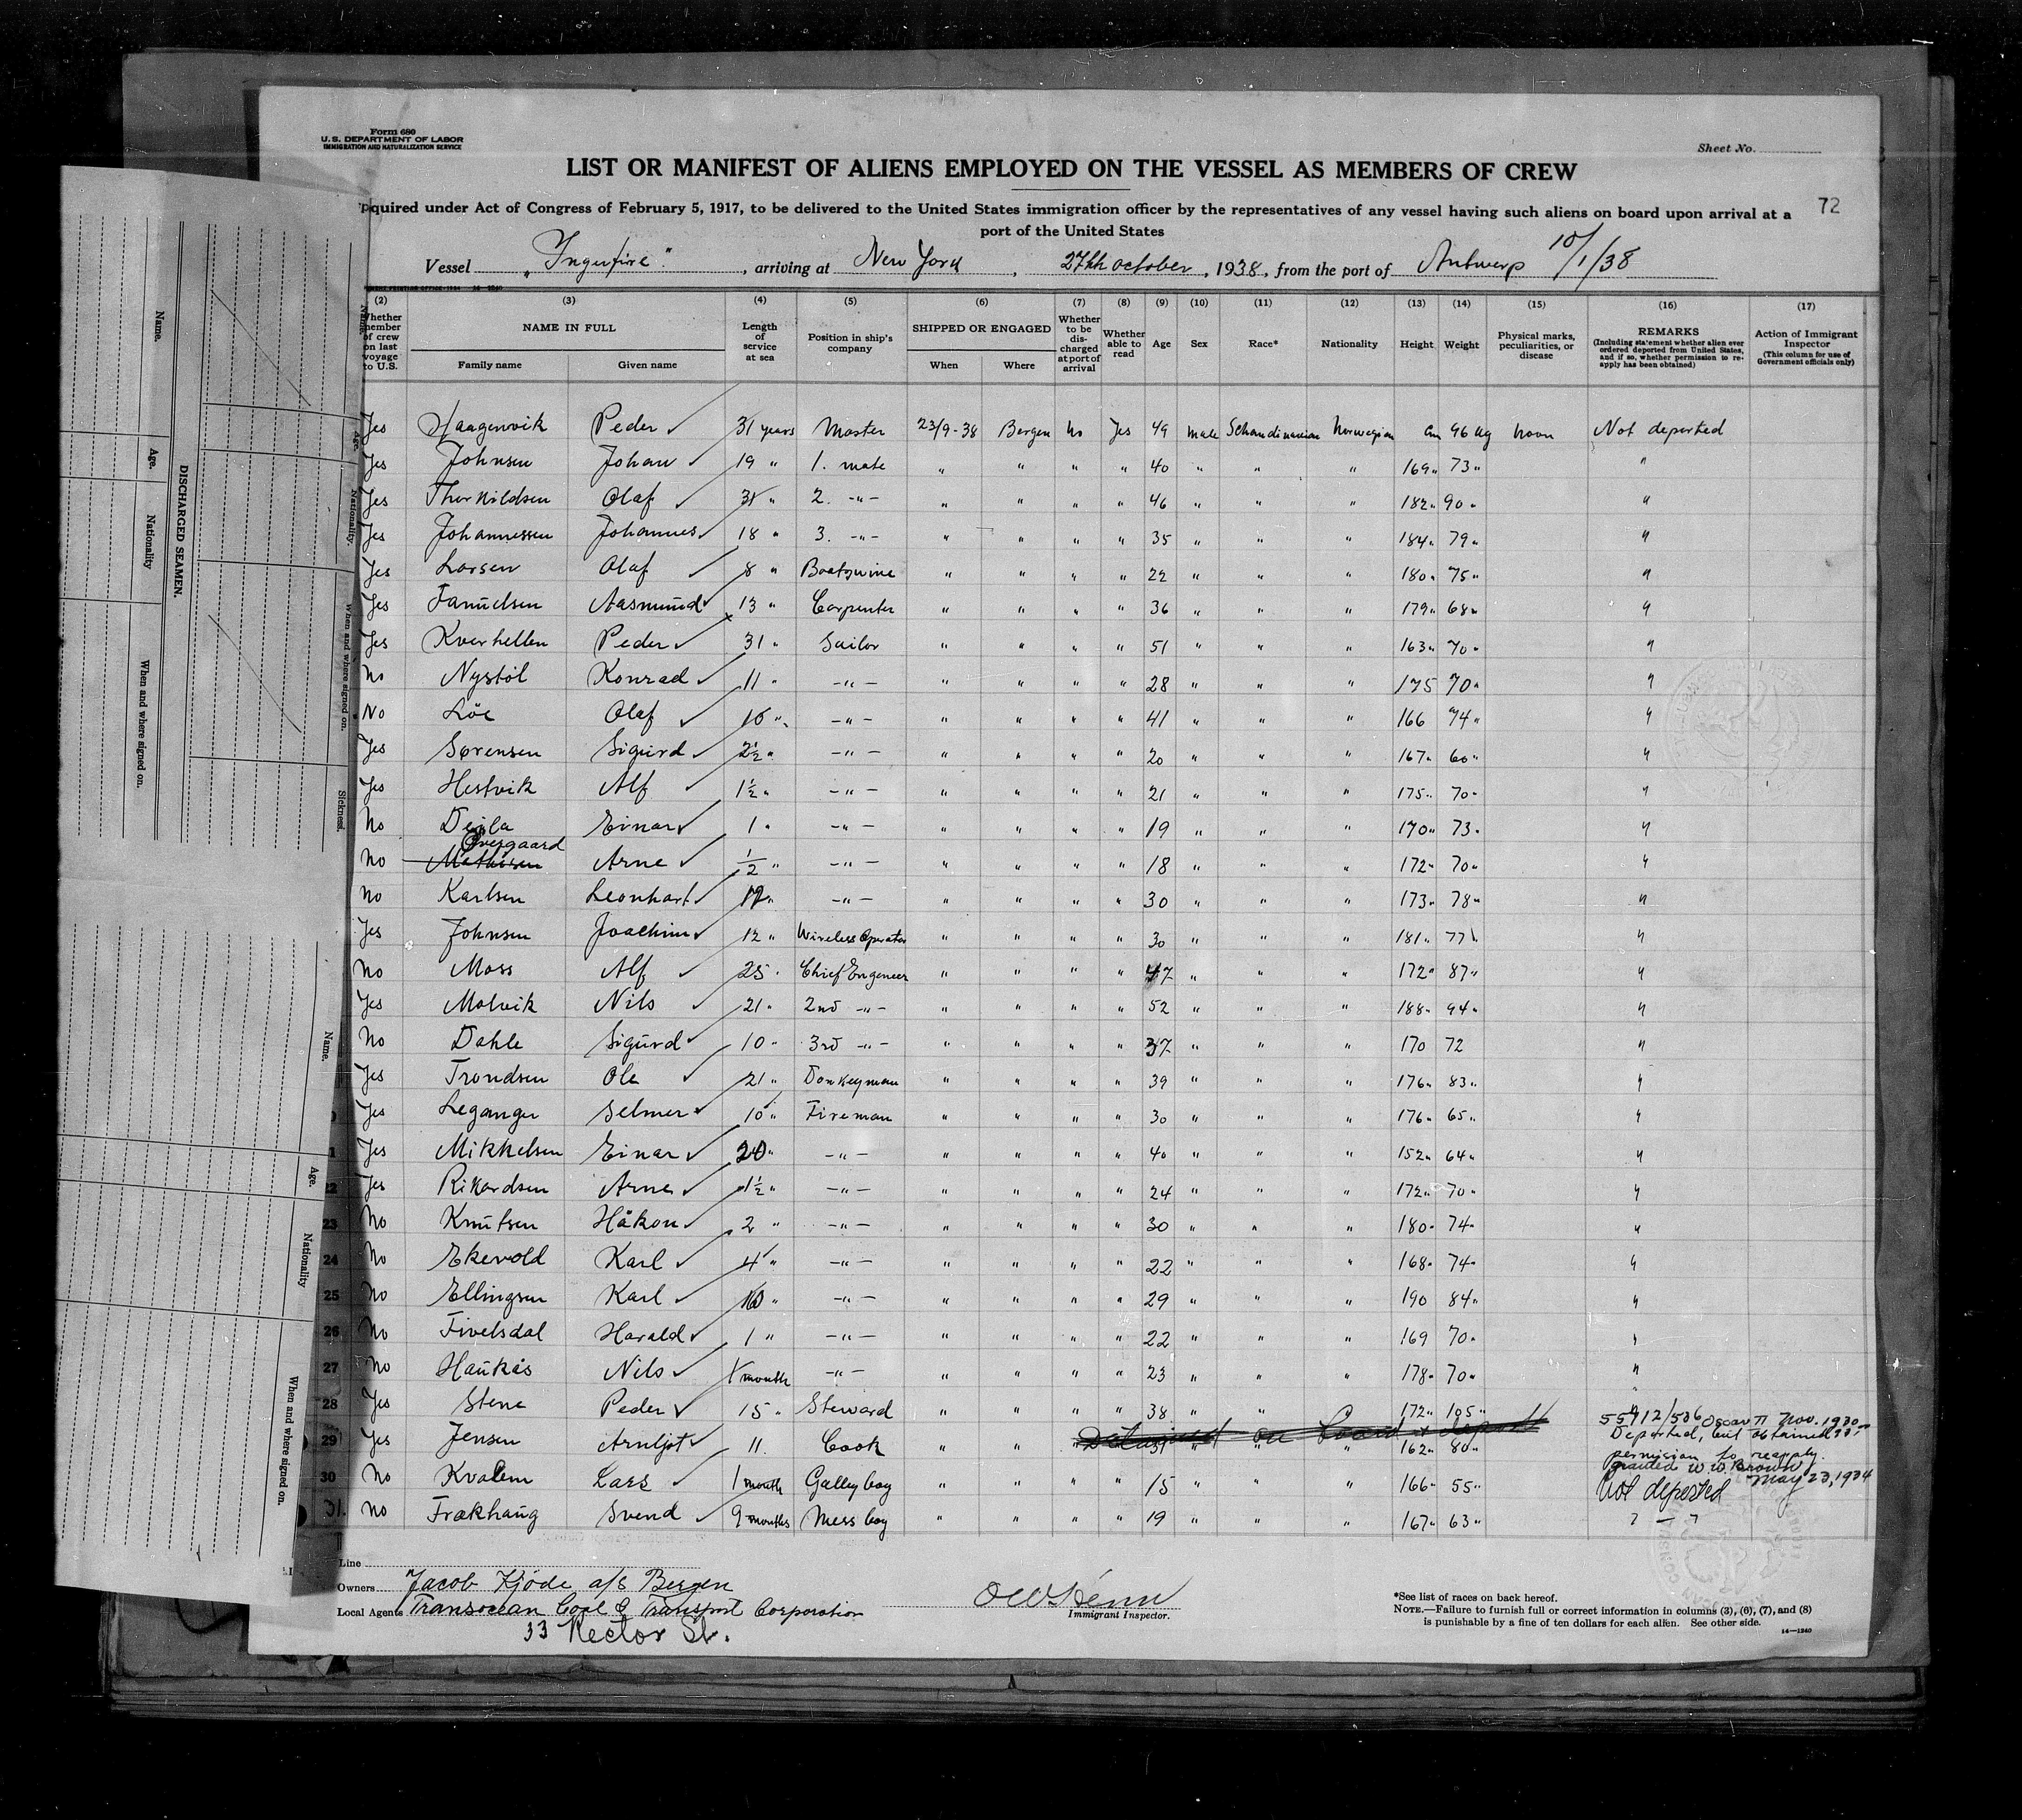 Form 680
U.S. DEPARTMENT OF LABOR
IMMIGRATION AND NATURALIZATION SERVICE
Sheet No.
LIST OR MANIFEST OF ALIENS EMPLOYED ON THE VESSEL AS MEMBERS OF CREW
quired under Act of Congress of February 5, 1917, to be delivered to the United States immigration officer by the representatives of any vessel having such aliens on board upon arrival at a
port of the United States
72
Vessel „Ingerfire", arriving at New York, 27th october, 1938, from the port of Antwerp 10/1/38
(2) (3) (4) (5) (6) (7) (8) (9) (10) (11) (12) (13) (14) (15) (16) (17)
Whether member of crew on last voyage to U.S. NAME IN FULL Family name Given name Length of service at sea Position in ship's company SHIPPED OR ENGAGED When Where Whether to be discharged at port of arrival Whether able to read Age Sex Race* Nationality Height Weight Physical marks, peculiarities, or disease REMARKS (Including statement whether alien ever ordered deported from United States, and if so, whether permission to reapply has been obtained) Action of Immigrant Inspector (This column for use of Government officials only)
Yes Haagenvik Peder 31 years Master 23/9-38 Bergen No Yes 49 male Schandinavian Norwegian cm 96 kg noon Not deported
Yes Johnsen Johan 19 " 1. mate " " " " 40 " " " 169 " 73 " "
Yes Thorkildsen Olaf 31 " 2. -"- " " " " 46 " " " 182 " 90 " "
Yes Johannessen Johannes 18 " 3. -"- " " " " 35 " " " 184 " 79 " "
Yes Larsen Olaf 8 " Boatswine " " " " 22 " " " 180 " 75 " "
Yes Aasmund 13 " Carpenter " " " " 36 " " " 179 " 68 " "
Yes Kverhellen Peder 31 " Sailor " " " " 51 " " " 163 " 70 " "
No Nystöl Konrad 11 " -"- " " " " 28 " " " 175 70 " "
No Löe Olaf 10 " -"- " " " " 41 " " " 166 74 " "
Yes Sørensen Sigurd 2½ " -"- " " " " 20 " " " 167 " 60 " "
Yes Hestvik Alf 1½ " -"- " " " " 21 " " " 175 " 70 " "
No Dejla Einar 1 " -"- " " " " 19 " " " 170 " 73 " "
Övergaard
No Mathisen Arne ½ " -"- " " " " 18 " " " 172 " 70 " "
No Karlsen Leonhart 12 " -"- " " " " 30 " " " 173 " 78 " "
Yes Johnsen Joachim 12 " Wireless Operator " " " " 30 " " " 181 " 77 " "
No Moss Alf 25 " Chief Engeneer " " " " 47 " " " 172 " 87 " "
Yes Molvik Nils 21 " 2nd -"- " " " " 52 " " " 188 " 94 " "
No Dahle Sigurd 10 " 3rd -"- " " " " 37 " " " 170 72 "
Yes Trondsen Ole 21 " Donkeyman " " " " 39 " " " 176 " 83 " "
Yes Leganger Selmer 10 " Fireman " " " " 30 " " " 176 " 65 " "
Yes Mikkelsen Einar 20 " -"- " " " " 40 " " " 152 " 64 " "
22 Yes Rikardsen Arne 1½ " -"- " " " " 24 " " " 172 " 70 " "
23 No Knutsen Håkon 2 " -"- " " " " 30 " " " 180 " 74 " "
24 No Ekevold Karl 4 " -"- " " " " 22 " " " 168 " 74 " "
25 No Ellingsen Karl 10 " -"- " " " " 29 " " " 190 84 " "
26 No Fivelsdal Harald 1 " -"- " " " " 22 " " " 169 70 " "
27 No Haukås Nils 1 month -"- " " " " 23 " " " 178 " 70 " "
28 Yes Stene Peder 15 " Steward " " " " 38 " " " 172 " 105 " "
29 Yes Jensen Arnljot 11 Cook " " " " " " " 162 " 80 "
Detained on board & deport
55912/506 Oscar II Nov. 1930
Deported, but obtained
permission to reapply
granted W.W. Brown
May 23, 1934
30 No Kvalem Lars 1 month Galley boy " " " " 15 " " " 166 " 55 " Not deported
31. No Frækhaug Svend 9 months Mess boy " " " " 19 " " " 167 " 63 " " - "
Line
Owners Jacob Kjöde a/s Bergen
Local Agents Transocean Coal & Transport Corporation
33 Rector St.
Immigrant Inspector.
*See list of races on back hereof.
NOTE.—Failure to furnish full or correct information in columns (3), (6), (7), and (8)
is punishable by a fine of ten dollars for each alien. See other side.
14—1240
DISCHARGED SEAMEN.
Name. Age. Nationality When and where signed on.
Name. Age. Nationality. When and where signed on. Sickness.
Name. Age. Nationality When and where signed on.